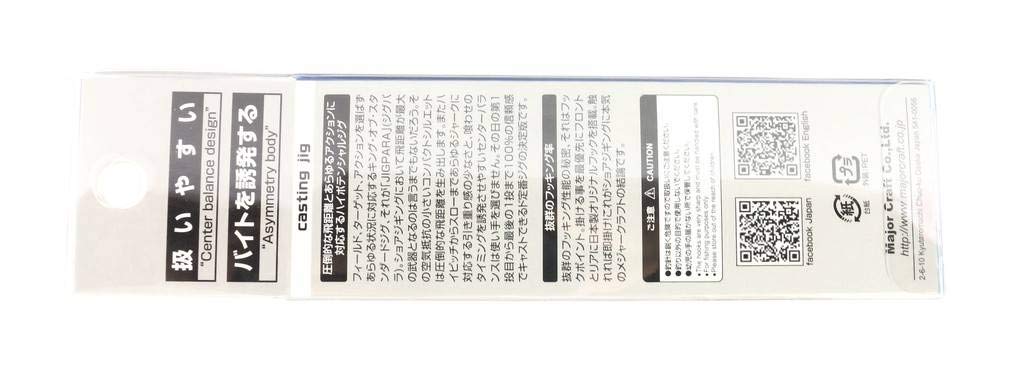 扱いやすい
"Center balance design"
バイトを誘発する
"Asymmetry body"
casting jig
圧倒的な飛距離とあらゆるアクションに
対応するハイポテンシャルジグ
フィールド、ターゲット、アクションを選ばず
あらゆる状況に対応するキング・オブ・スタ
ンダードジグ、それが「JIGPARA」(ジグパ
ラ)。ショアジギングにおいて飛距離が最大
の武器となるのは言うまでもないだろう。そ
の空気抵抗の小さいコンパクトシルエット
は圧倒的な飛距離を生み出します。またハ
イピッチからスローまであらゆるジャークに
対応する引き重り感の少なさと、喰わせの
タイミングを誘発させやすいセンターバラ
ンスは使い手を選びません。その日の第1
投目から最後の1投まで100%の信頼感
でキャストできるド定番ジグの決定版です。
抜群のフッキング率
抜群のフッキング性能の秘密、それはフッ
クポイント、掛ける事を最優先にフロント
とリアに日本製オリジナルフックを搭載。触
れれば即掛け!これがショアジギングに本気
のメジャークラフトの結論です。
ご注意 CAUTION
●釣針は鋭く危険ですので取扱いにご注意ください。
●釣り以外の目的で使用しないでください。
●幼児の手の届かない所で保管してください。
●The hooks are very sharp and must be handled with care.
●For fishing purposes only.
●Please store out of the reach of children.
facebook Japan
facebook English
紙
台紙
プラ
外装:PET
Major Craft Co.,Ltd.
http://www.majorcraft.co.jp
2-6-10 Kyutaromachi Chuo-ku Osaka Japan 541-0056